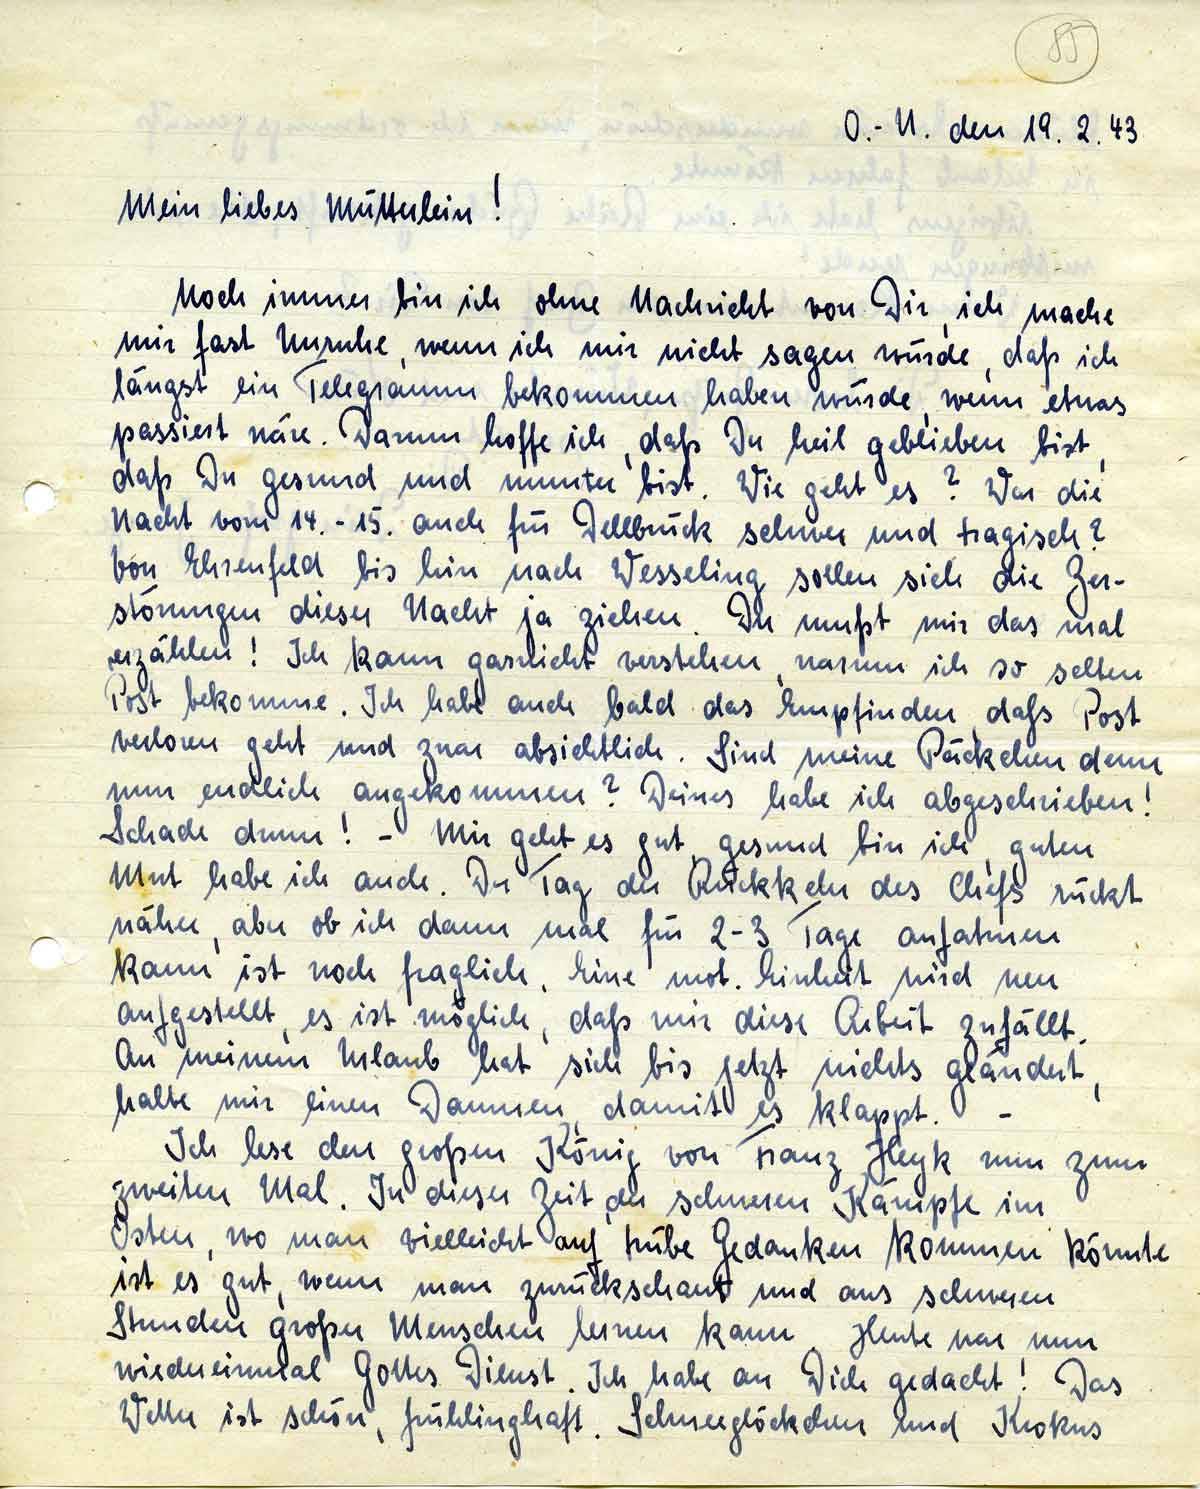 85
O.-U. den 19. 2. 43
Mein liebes Mütterlein!
Noch immer bin ich ohne Nachricht von Dir, ich mache
mir fast Unruhe, wenn ich mir nicht sagen würde, daß ich
längst ein Telegramm bekommen haben würde, wenn etwas
passiert wäre. Darum hoffe ich, daß Du heil geblieben bist,
daß Du gesund und munter bist. Wie geht es? War die
Nacht vom 14.-15. auch für Dellbrück schwer und tragisch?
Von Ehrenfeld bis hin nach Wesseling sollen sich die Zer-
störungen dieser Nacht ja ziehen. Du mußt mir das mal
erzählen! Ich kann garnicht verstehen, warum ich so selten
Post bekomme. Ich habe auch bald das Empfinden, daß Post
verloren geht und zwar absichtlich. Sind meine Päckchen denn
nun endlich angekommen? Deines habe ich abgeschrieben!
Schade drum! - Mir geht es gut, gesund bin ich, guten
Mut habe ich auch. Der Tag der Rückkehr des Chefs rückt
näher, aber ob ich dann mal für 2-3 Tage aufatmen
kann ist noch fraglich. Eine mot. Einheit wird neu
aufgestellt, es ist möglich, daß mir diese Arbeit zufällt.
An meinem Urlaub hat sich bis jetzt nichts geändert,
halte mir einen Daumen, damit es klappt. -
Ich lese den großen König von Franz Heyk nun zum
zweiten Mal. In dieser Zeit der schweren Kämpfe im
Osten, wo man vielleicht auf trübe Gedanken kommen könnte
ist es gut, wenn man zurückschaut und aus schweren
Stunden großer Menschen lernen kann. Heute war nun
wiedereinmal Gottes Dienst. Ich habe an Dich gedacht! Das
Wetter ist schön, frühlinghaft. Schneeglöckchen und Krokus